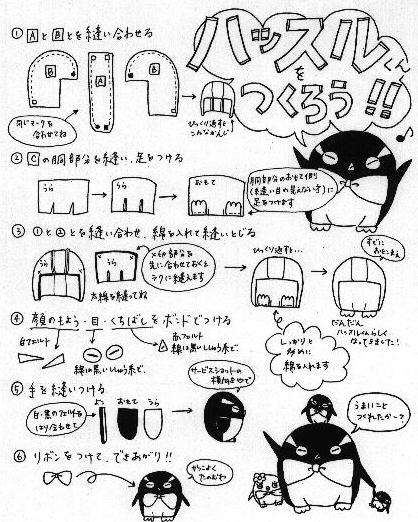 ハッスルくん
を
つくろう!!
① AとBとを縫い合わせる
B
A
B
同じマークを
合わせてね
ひっくり返すと
こんなかんじ
② Cの胴部分を縫い、足をつける
うら
うら
おもて
胴部分のおもて側
(縫い目の見えない方)に
足をつけます
③ ①と②とを縫い合わせ、綿を入れて縫いとじる
×印部分を
先に合わせておくと
ラクに縫えます
うら
太線を縫ってね
ひっくり返す…
すでに
しっかりと
多めに
綿を入れます
だんだん
ハッスルくんらしく
なってきました!
④ 顔のもよう・目・くちばしをボンドでつける
白フェルト
線は黒いししゅう糸で。
赤フェルト
線は黒いししゅう糸で。
⑤ 手を縫いつける
白・黒のフェルトを
はり合わせて
よこ
おもて
うら
サービスショットの
横向きやで
⑥ リボンをつけて、できあがり!!
うまいこと
つくれたか~?